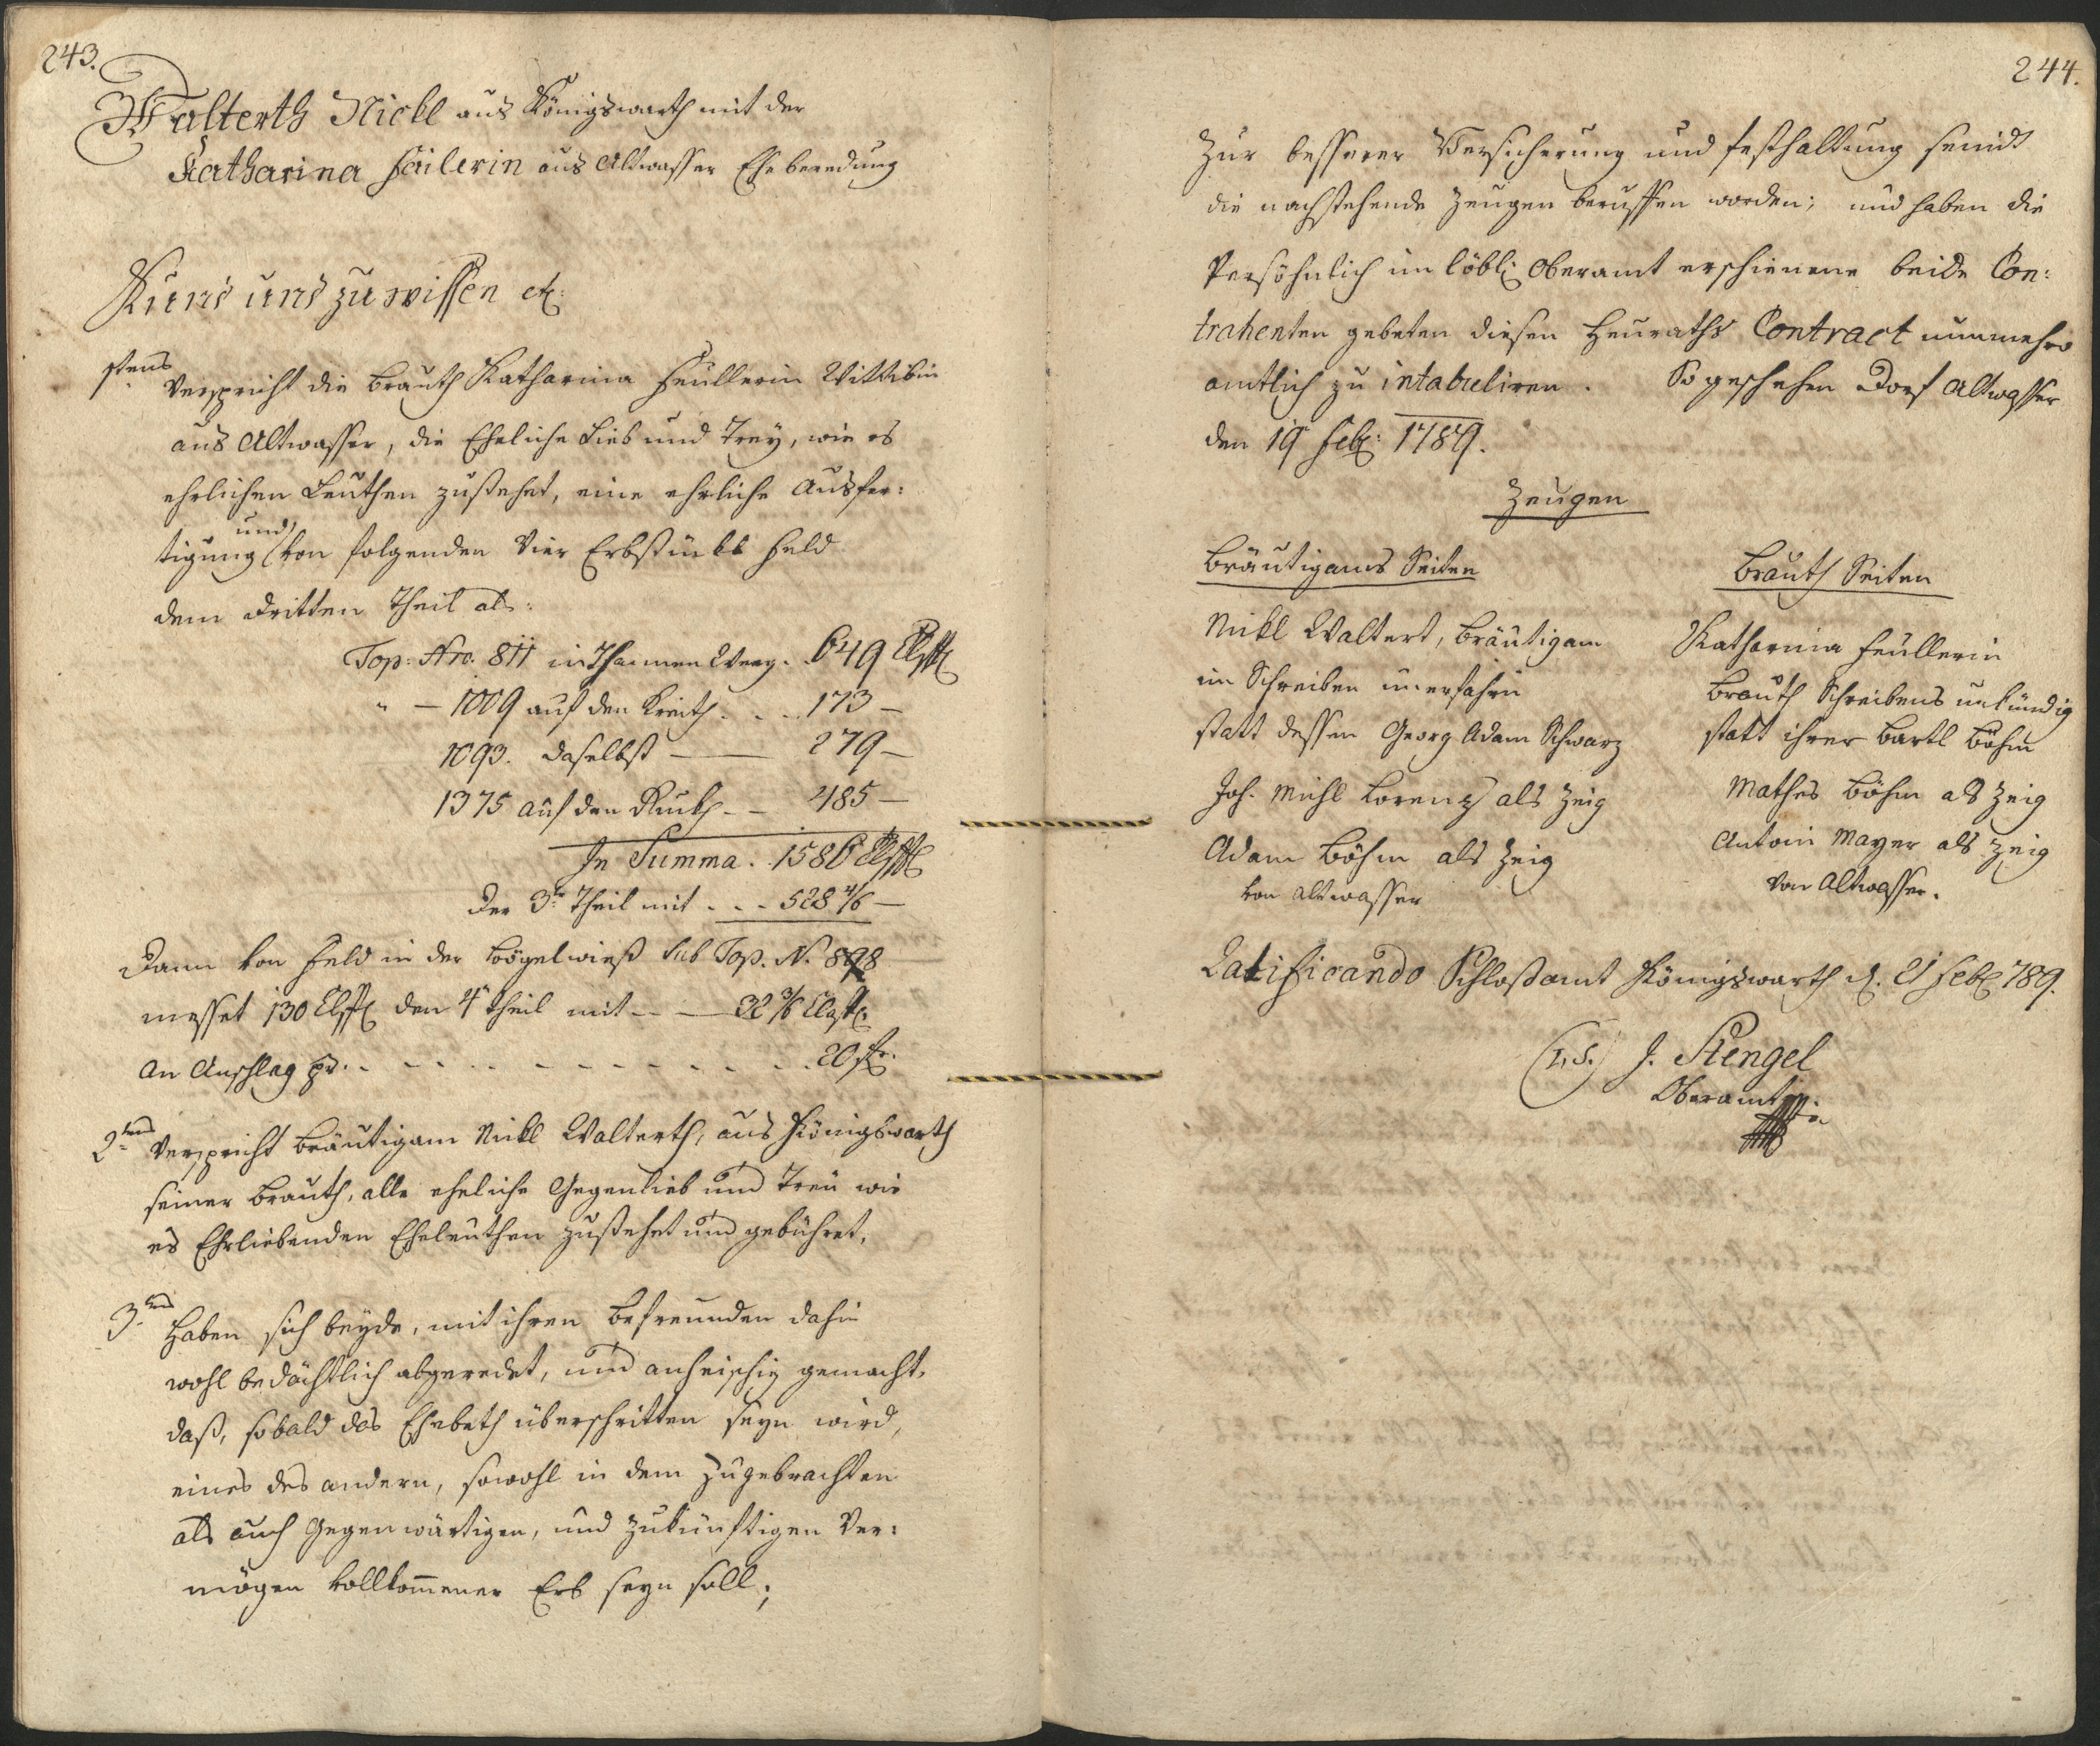 243.
Walterth Nickl aus Königswarth mit der
Katharina Failerin aus Altwasser Ehe beredung
Kund und zu wissen etc:
1stens Verspricht die Brauth Katharina Feüllerin Wittibin
aus Altwasser, die Eheliche Lieb und Trey, wie es
ehrlichen Leuthen zustehet, eine ehrliche Ausfer:
tigung und von folgenden Vier Erbstückl Feld
dem dritten Theil als:
Top: Nro: 811 in Thannen Weeg . . 649
" — 1009 auf den Kreith . . . 173 —
1093. daselbst — — 279 —
1375 auf den — — 485 —
In Summa . . 1586
Der 3te Theil mit . . . 528 4/6 —
Dann von Feld in der Vögelwieß sub Top. N. 898
messet 130 den 4t theil mit — — 32 3/6
An Anschlag pr. . . . . . . . . 20 f.
2tens Verspricht Bräutigam Nickl Walterth, aus Königswarth
seiner Brauth, alle eheliche Gegenlieb und Treü wie
es Ehrliebenden Eheleuthen zustehet und gebühret.
3tens Haben sich beyde, mit ihren Befreunden dahin
wohl bedächtlich abgeredet, und anheischig gemacht,
daß, sobald das Ehebeth überschritten seyn wird,
eines des andern, sowohl in dem zugebrachten
als auch Gegenwärtigen, und zukünftigen Ver:
mögen vollkom̅ener Erb seyn soll;
244.
Zur besserer Versicherung und festhaltung seindt
die nachstehende Zeugen beruffen worden; und haben die
Persöhnlich im löbl: Oberamt erschienene beide Con:
trahenten gebeten diesen Heuraths Contract nunmehro
amtlich zu intabuliren. So geschehen Dorf Altwasser
den 19 Feb: 1789.
Zeugen
Bräutigams Seiten
Nickl Waltert, Bräutigam
im Schreiben unerfahrn
statt dessen Georg Adam Schwarz
Joh. Michl Lorenz als Zeig
Adam Böhm als Zeig
von Altwasser
Brauth Seiten
Katharina Feüllerin
Brauth Schreibens unkündig
statt ihrer Bartl Böhm
Mathes Böhm als Zeig
Antoni Mayer als Zeig
von Altwasser.
Ratificando Schloßamt Königswarth d. 21 Feb: 789.
(L.S.) J. Stengel
Oberamt